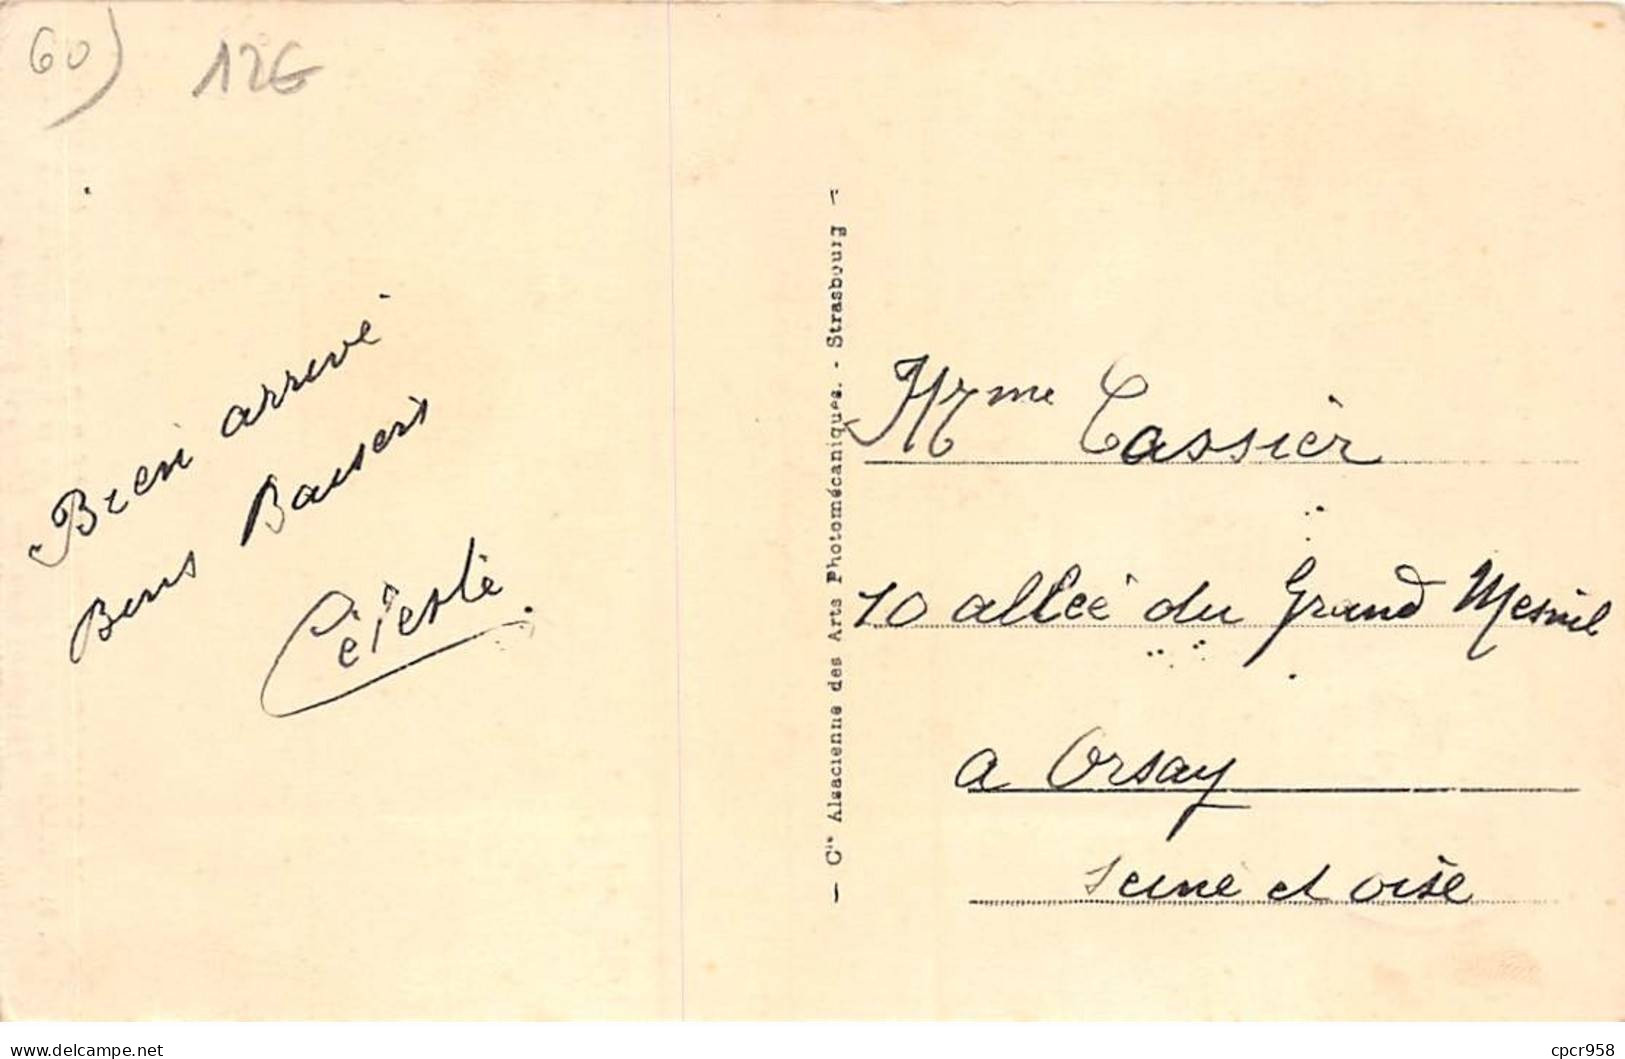 60) 12€
Bien arrivé
Bons Baisers
Céleste
— Cie Alsacienne des Arts Photomécaniques. - Strasbourg —
Mme Cassier
10 allée du Grand Mesnil
a Orsay
Seine et oise
www.delcampe.net
cpcr958